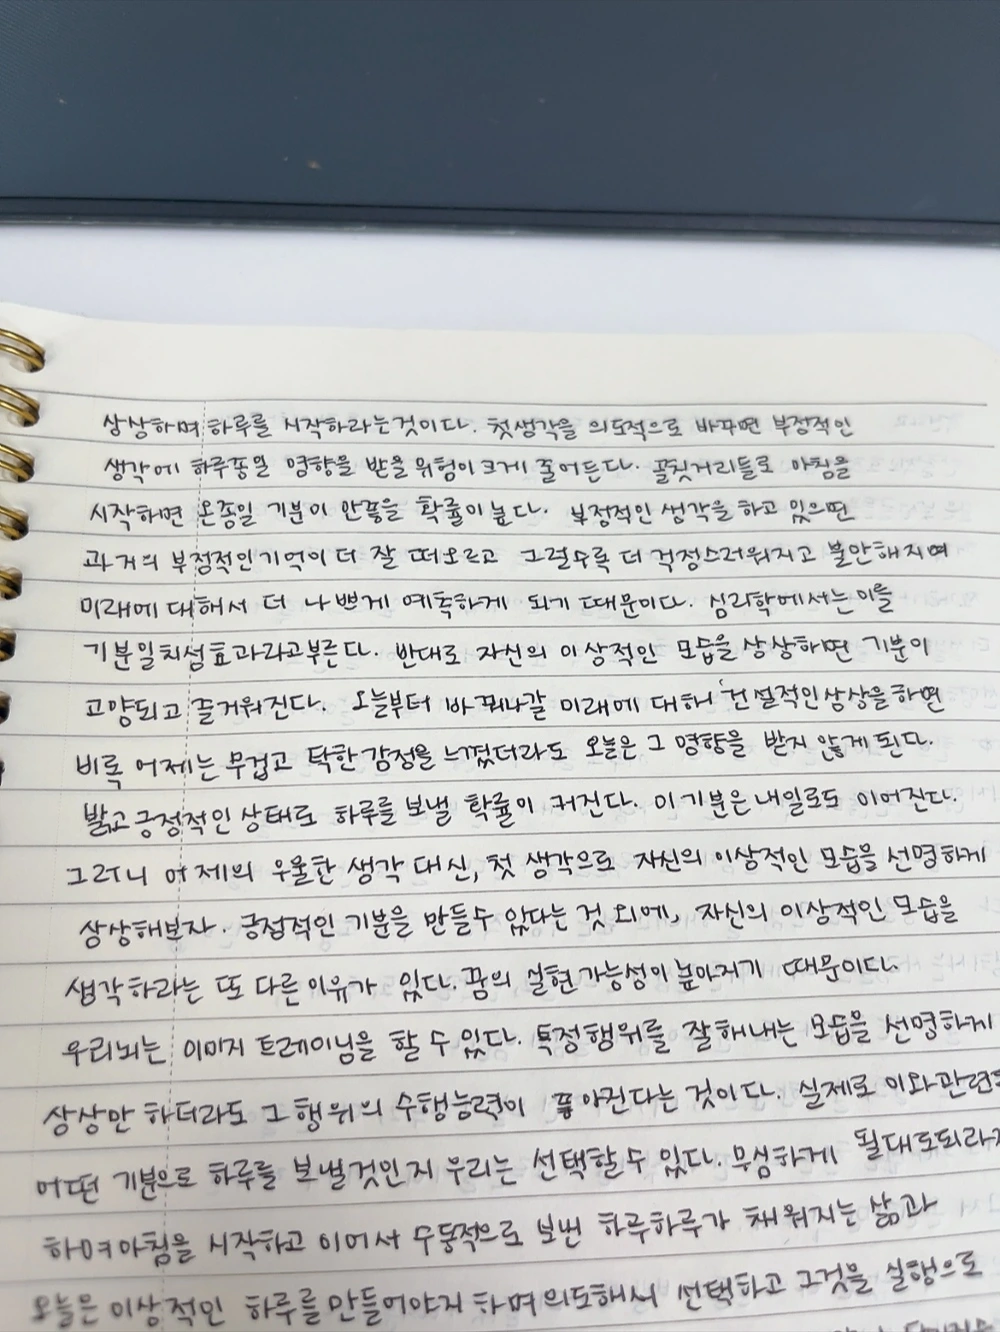 상상하며 하루를 시작하라는것이다. 첫생각을 의도적으로 바꾸면 부정적인
생각에 하루종일 영향을 받을 위험이 크게 줄어든다. 골칫거리들로 아침을
시작하면 온종일 기분이 안좋을 확률이 높다. 부정적인 생각을 하고 있으면
과거의 부정적인기억이 더 잘 떠오르고 그럴수록 더 걱정스러워지고 불안해지며
미래에 대해서 더 나쁘게 예측하게 되기 때문이다. 심리학에서는 이를
기분일치성효과라고부른다. 반대로 자신의 이상적인 모습을 상상하면 기분이
고양되고 즐거워진다. 오늘부터 바꿔나갈 미래에 대해 건설적인상상을하면
비록 어제는 무겁고 탁한감정을 느꼈더라도 오늘은 그 영향을 받지 않게된다.
밝고 긍정적인 상태로 하루를 보낼 확률이 커진다. 이 기분은 내일로도 이어진다.
그러니 어제의 우울한 생각 대신, 첫 생각으로 자신의 이상적인 모습을 선명하게
상상해보자. 긍정적인 기분을 만들수 있다는 것 외에, 자신의 이상적인 모습을
생각하라는 또 다른 이유가 있다. 꿈의 실현가능성이 높아지기 때문이다.
우리뇌는 이미지 트레이닝을 할 수 있다. 특정행위를 잘해내는 모습을 선명하게
상상만 하더라도 그 행위의 수행능력이 좋아진다는 것이다. 실제로 이와관련
어떤 기분으로 하루를 보낼것인지 우리는 선택할수 있다. 무심하게 될대로되라
하며아침을 시작하고 이어서 수동적으로 보낸 하루하루가 채워지는 삶과
오늘은 이상적인 하루를 만들어야지 하며 의도해서 선택하고 그것을 실행으로